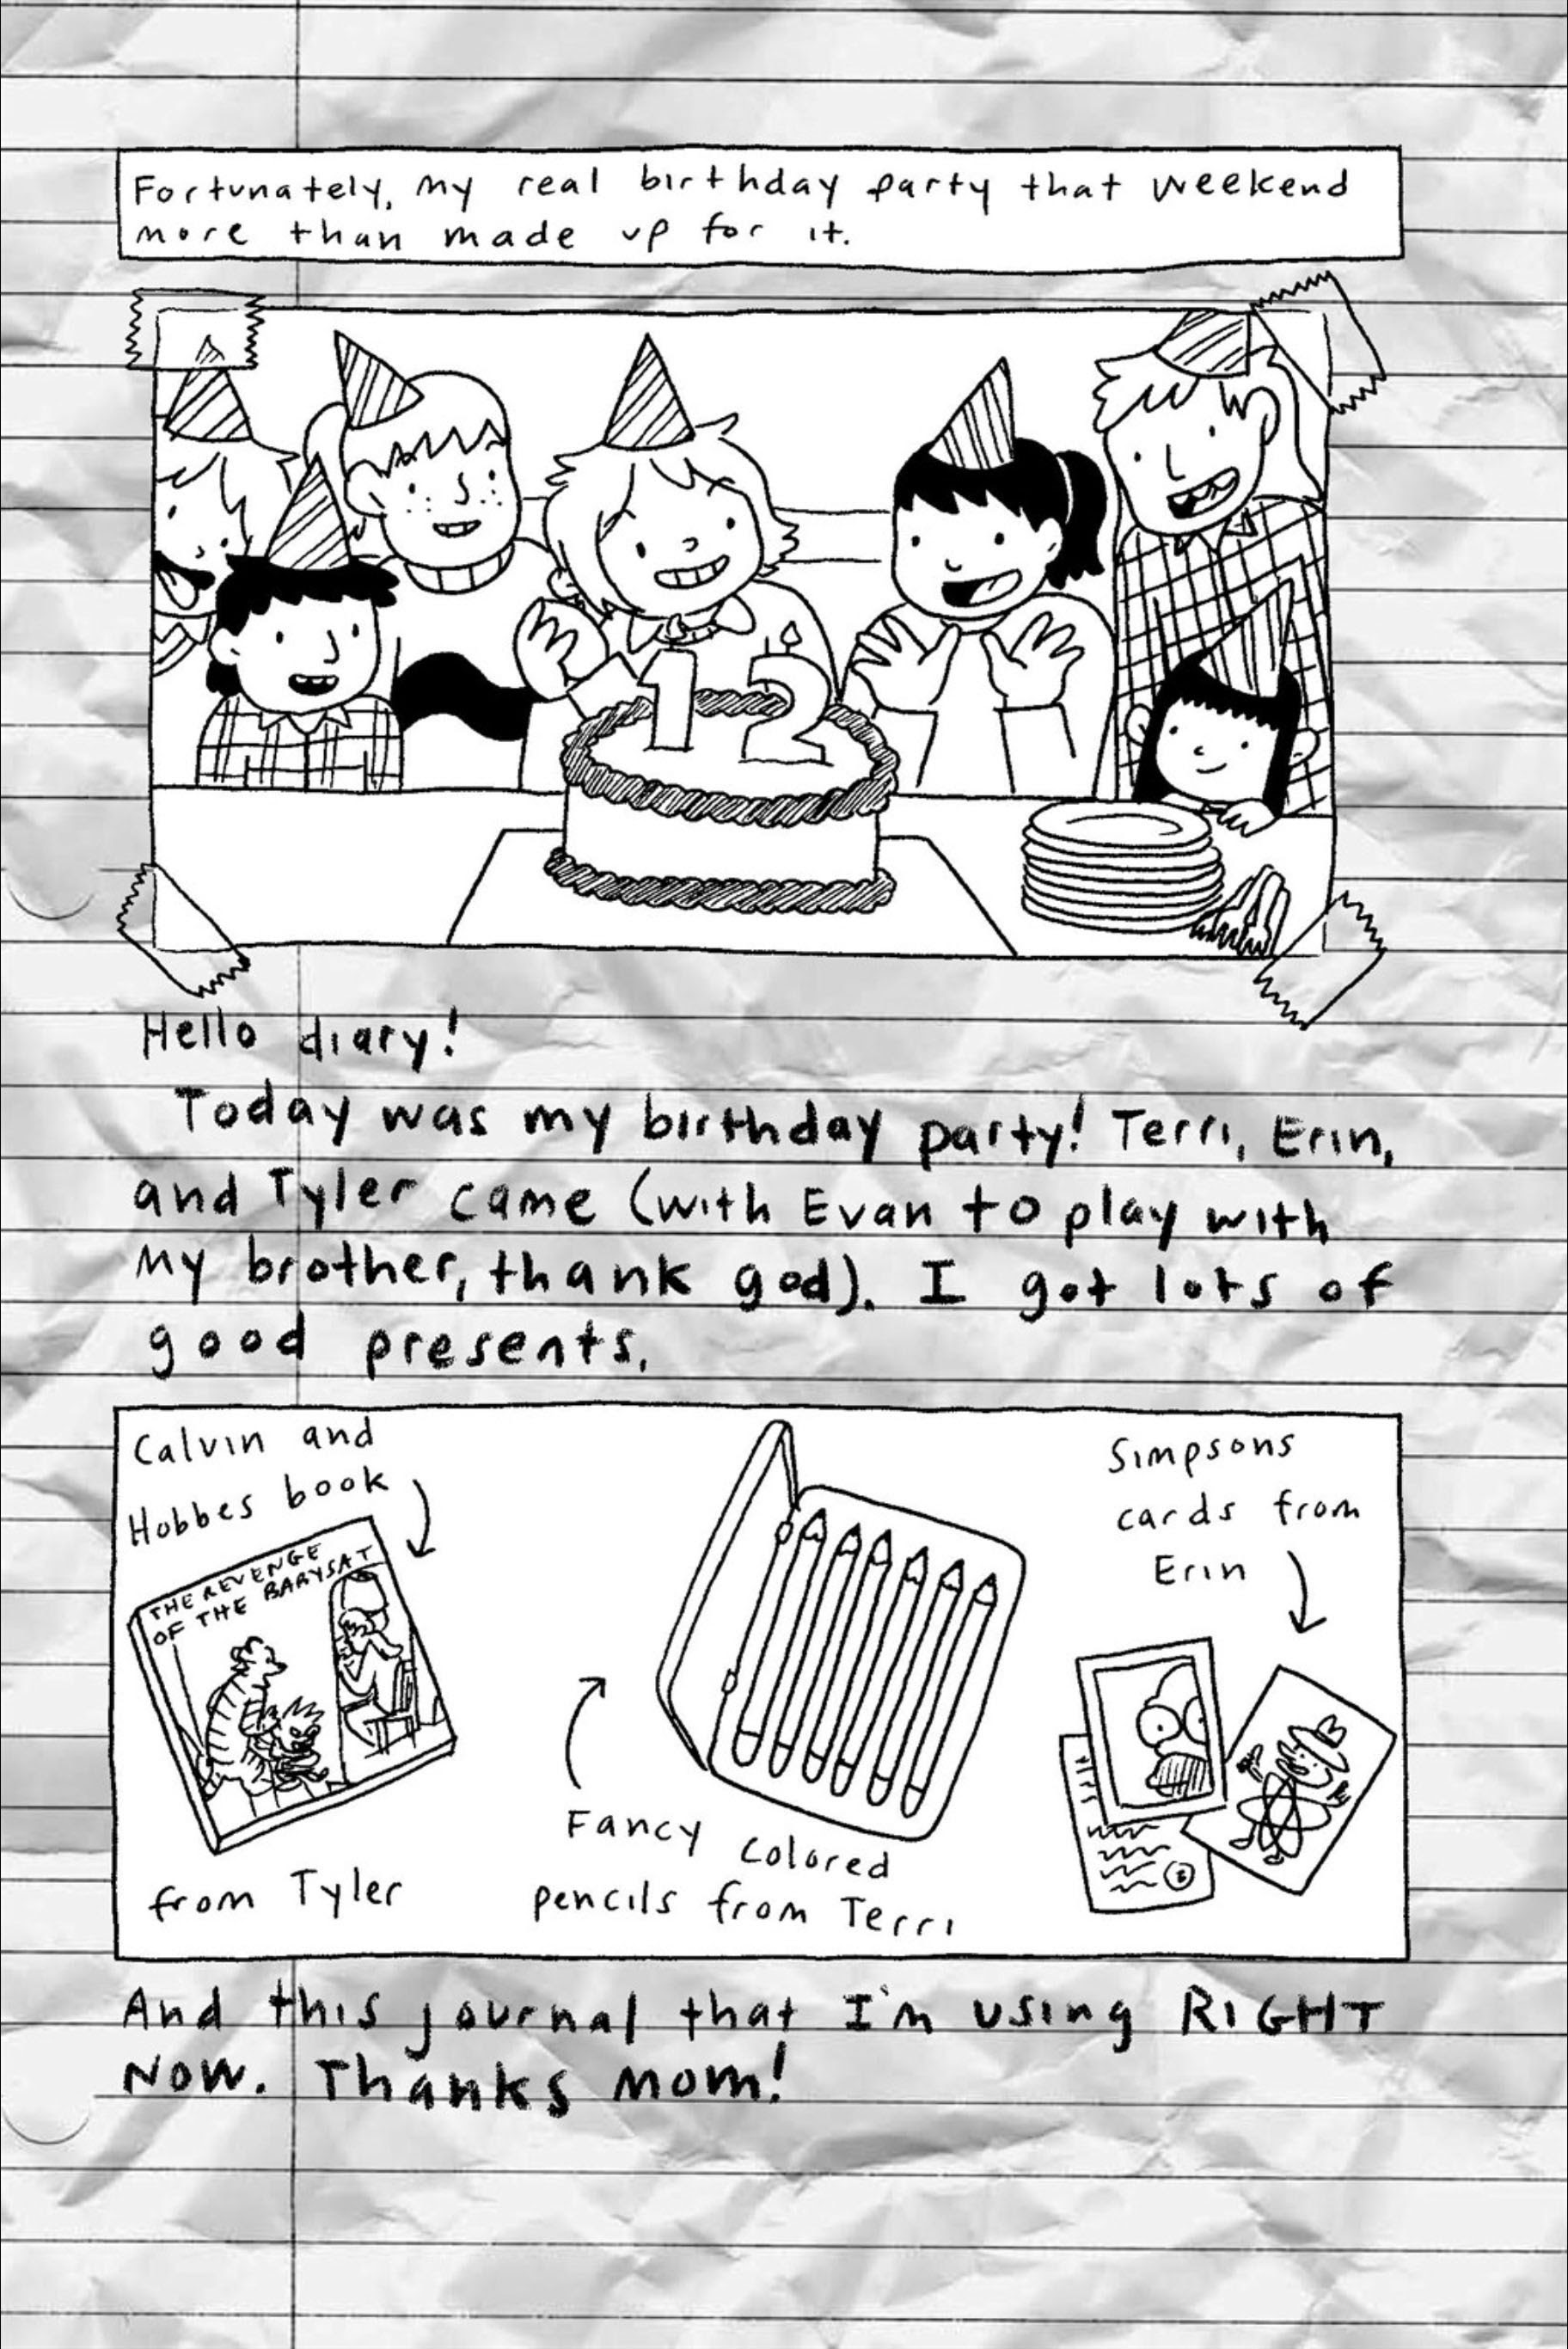 Fortunately, my real birthday party that weekend
more than made up for it.
12
Hello diary!
Today was my birthday party! Terri, Erin,
and Tyler came (with Evan to play with
my brother, thank god). I got lots of
good presents.
Calvin and
Hobbes book
THE REVENGE
OF THE BABYSAT
from Tyler
Fancy colored
pencils from Terri
Simpsons
cards from
Erin
And this journal that I'm using RIGHT
NOW. Thanks Mom!